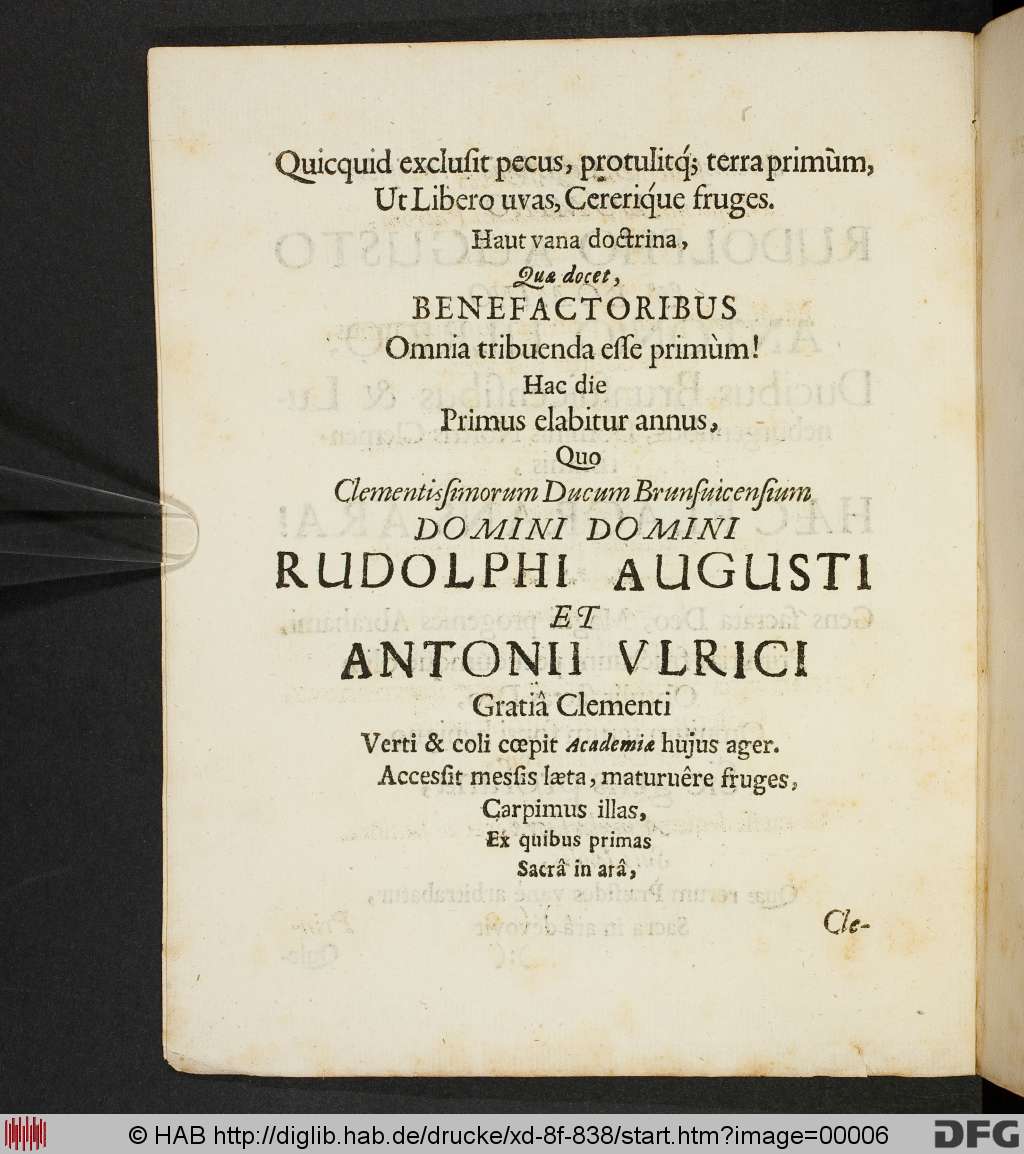 Quicquid exclusit pecus, protulitq́; terra primùm,
Ut Libero uvas, Cereriq́ue fruges.
Haut vana doctrina,
Quæ docet,
BENEFACTORIBUS
Omnia tribuenda esse primùm!
Hac die
Primus elabitur annus,
Quo
Clementissimorum Ducum Brunsuicensium
DOMINI DOMINI
RUDOLPHI AUGUSTI
ET
ANTONII VLRICI
Gratiâ Clementi
Verti & coli cœpit Academiæ hujus ager.
Accessit messis læta, maturuêre fruges,
Carpimus illas,
Ex quibus primas
Sacrâ in arâ,
Cle-
© HAB http://diglib.hab.de/drucke/xd-8f-838/start.htm?image=00006
DFG